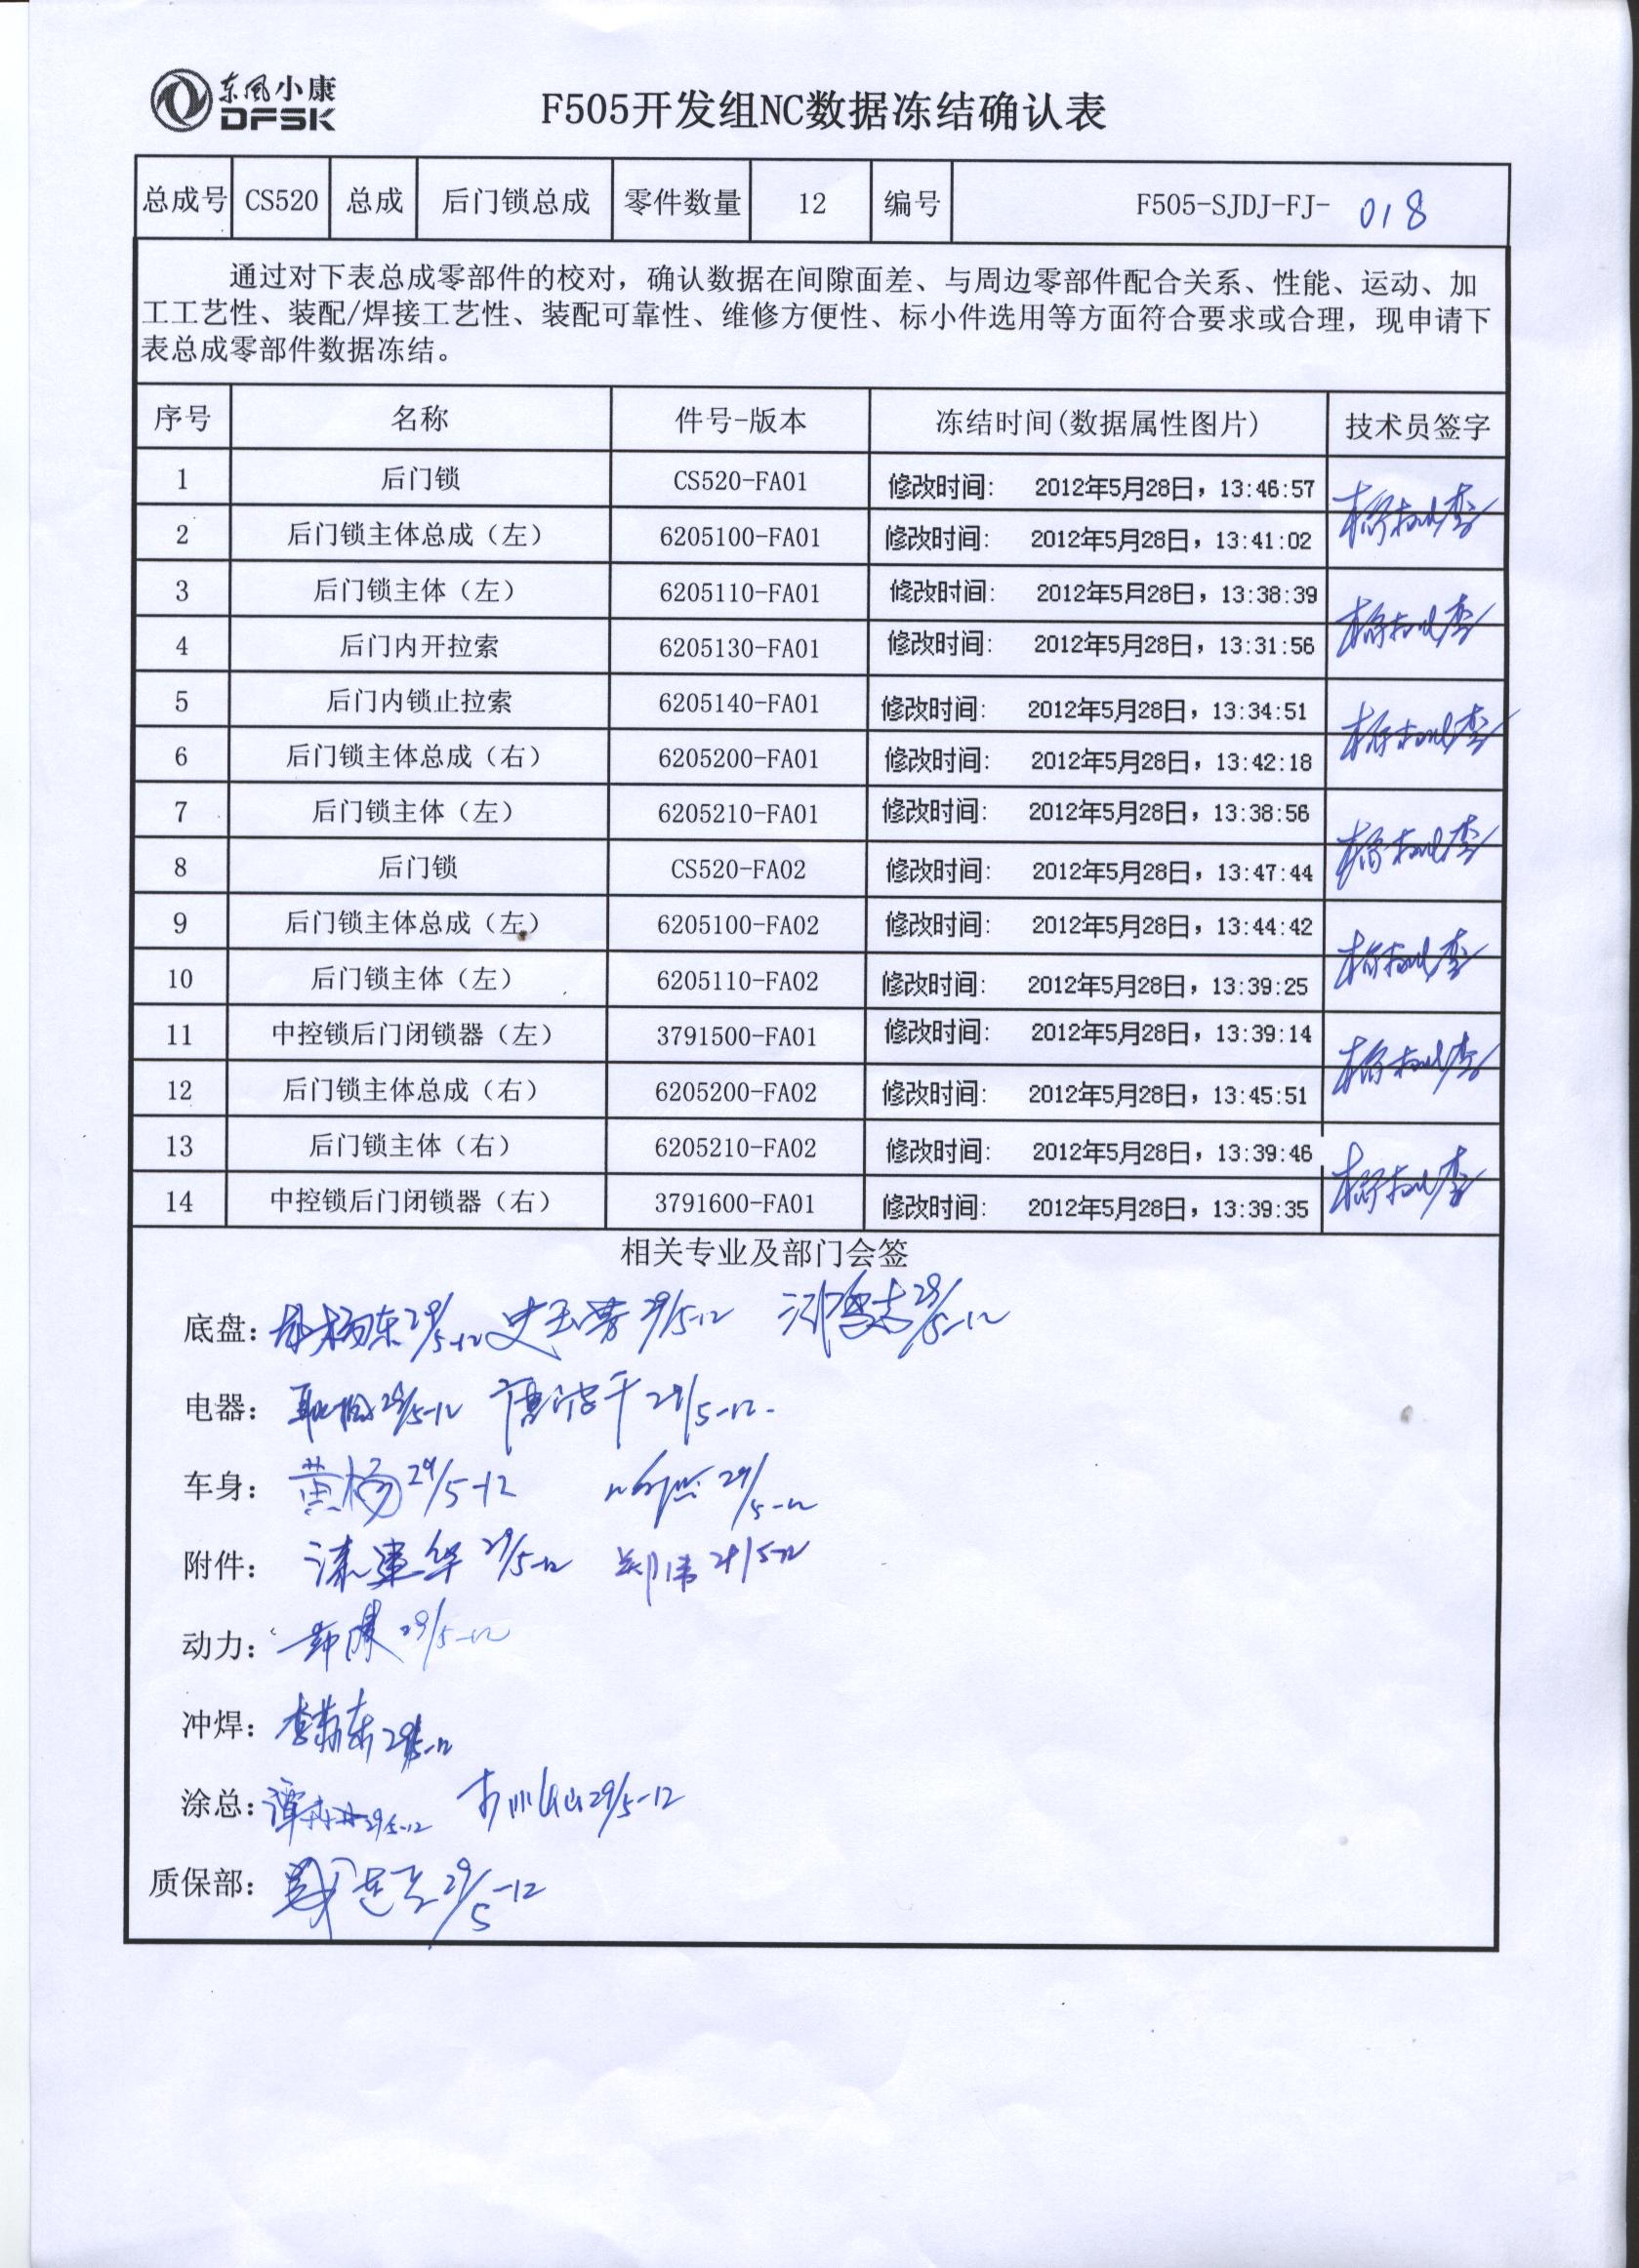 东风小康
DFSK
F505开发组NC数据冻结确认表
总成号 CS520 总成 后门锁总成 零件数量 12 编号 F505-SJDJ-FJ-018
通过对下表总成零部件的校对，确认数据在间隙面差、与周边零部件配合关系、性能、运动、加
工工艺性、装配/焊接工艺性、装配可靠性、维修方便性、标小件选用等方面符合要求或合理，现申请下
表总成零部件数据冻结。
序号 名称 件号-版本 冻结时间(数据属性图片) 技术员签字
1 后门锁 CS520-FA01 修改时间: 2012年5月28日，13:46:57
2 后门锁主体总成（左） 6205100-FA01 修改时间: 2012年5月28日，13:41:02
3 后门锁主体（左） 6205110-FA01 修改时间: 2012年5月28日，13:38:39
4 后门内开拉索 6205130-FA01 修改时间: 2012年5月28日，13:31:56
5 后门内锁止拉索 6205140-FA01 修改时间: 2012年5月28日，13:34:51
6 后门锁主体总成（右） 6205200-FA01 修改时间: 2012年5月28日，13:42:18
7 后门锁主体（左） 6205210-FA01 修改时间: 2012年5月28日，13:38:56
8 后门锁 CS520-FA02 修改时间: 2012年5月28日，13:47:44
9 后门锁主体总成（左） 6205100-FA02 修改时间: 2012年5月28日，13:44:42
10 后门锁主体（左） 6205110-FA02 修改时间: 2012年5月28日，13:39:25
11 中控锁后门闭锁器（左） 3791500-FA01 修改时间: 2012年5月28日，13:39:14
12 后门锁主体总成（右） 6205200-FA02 修改时间: 2012年5月28日，13:45:51
13 后门锁主体（右） 6205210-FA02 修改时间: 2012年5月28日，13:39:46
14 中控锁后门闭锁器（右） 3791600-FA01 修改时间: 2012年5月28日，13:39:35
相关专业及部门会签
底盘: 29/5-12 史玉芳 29/5-12 29/5-12
电器: 29/5-12 29/5-12
车身: 黄杨 29/5-12 29/5-12
附件: 漆建华 29/5-12 郑伟 29/5-12
动力: 29/5-12
冲焊: 29/5-12
涂总: 谭丹丹 29/5-12 29/5-12
质保部: 29/5-12